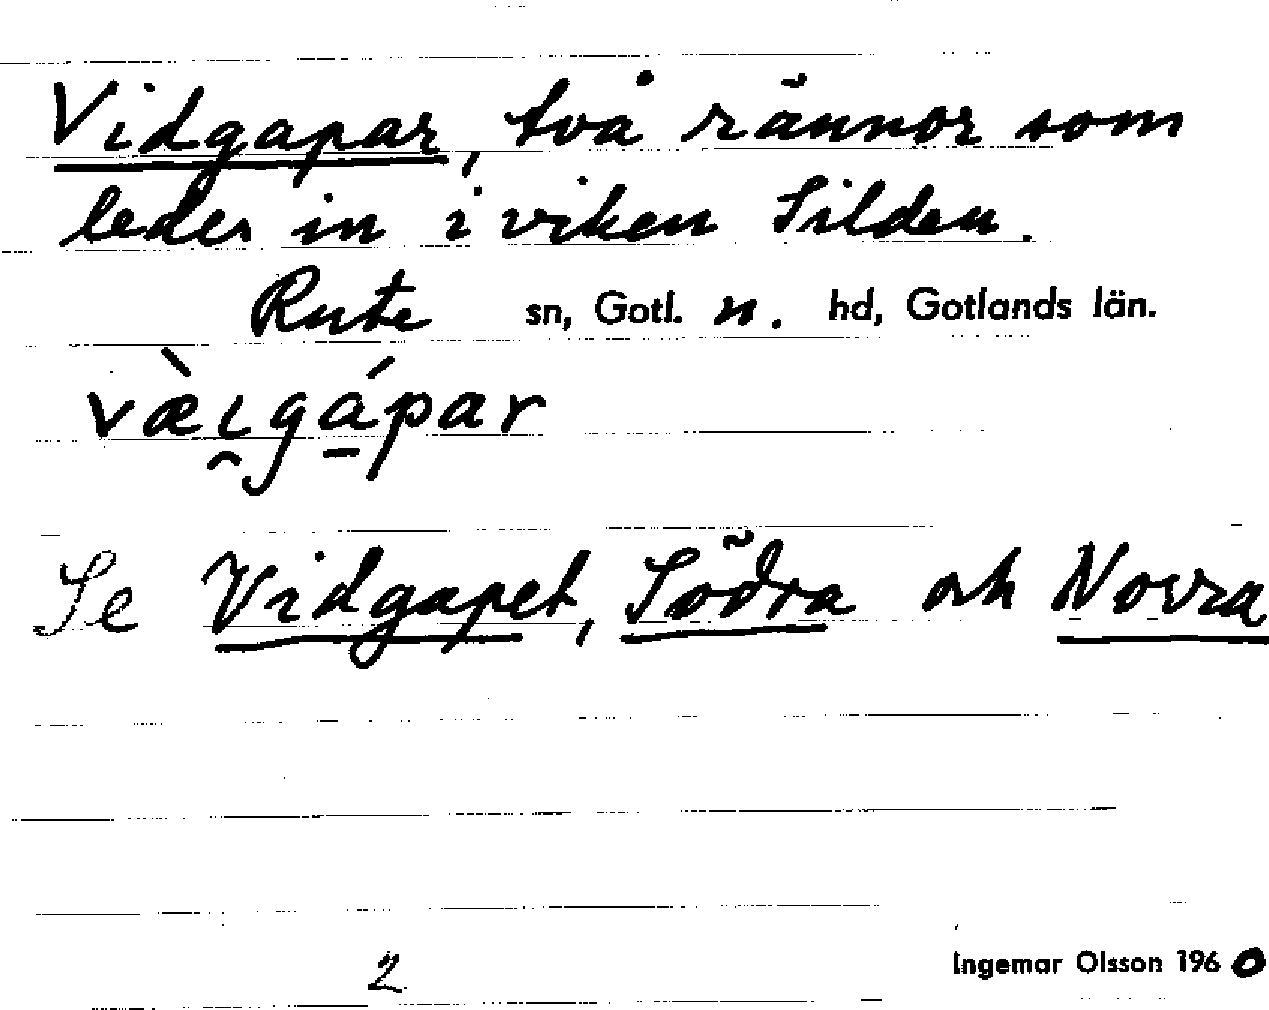 Vidgapar, två rännor som
leder in i viken Silden.
Rute sn, Gotl. n. hd, Gotlands län.
væ̀ı̯gá̱par
Se Vidgapet, Södra och Norra
2
Ingemar Olsson 1960